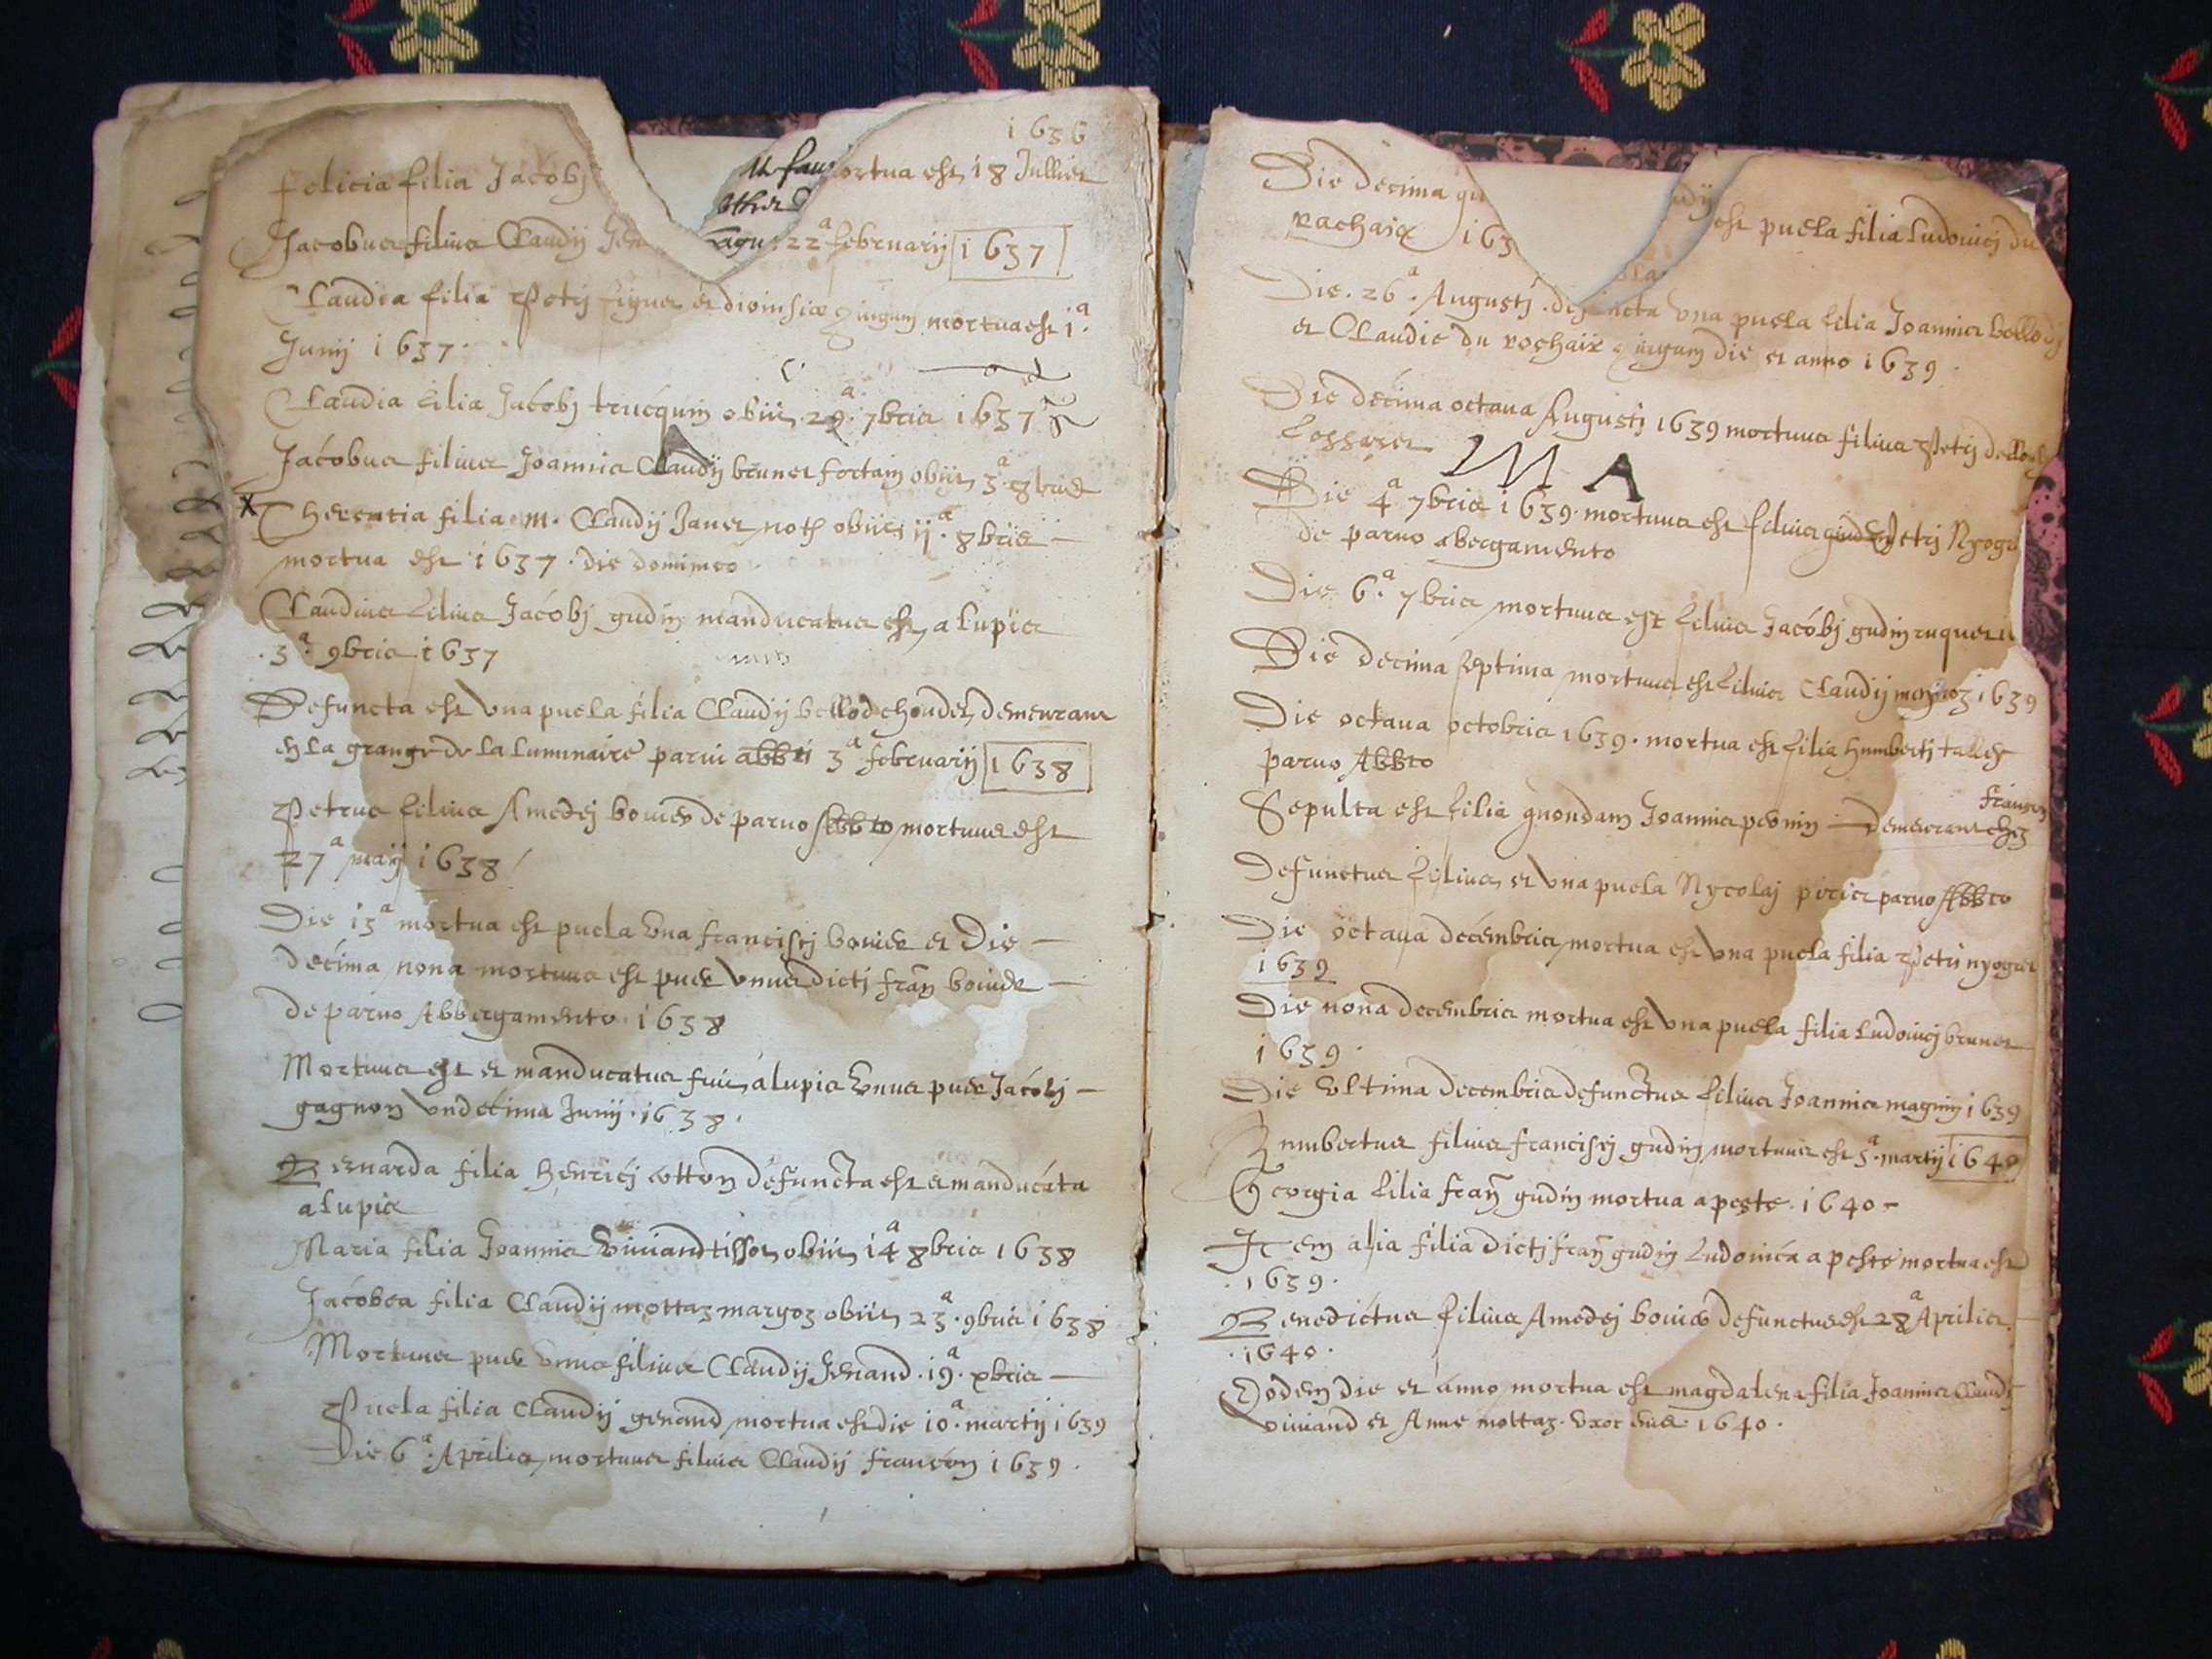 1636
felicia filia Jacobj mortua est 18 Jullies
Jacobus filius Claudij 22a februarij 1637
Claudia filia Petrj mortua est 1a
Junij 1637
Claudia filia Jacobj trucquin obiit 29a 7bris 1637
Jacobus filius Joannis Claudij brunet fortain obiit 3a 8bris
x Therentia filia m. Claudij Janet not obiit ij a 8bris
mortua est 1637 die dominico
Claudius filius Jacobj gudin manducatus est a lupis
3a 9bris 1637
Defuncta est una puella filia Claudij bellod choudet demeurant
en la grange de la luminaire parui abbti 3a februarij 1638
Petrus filius Amedej bouier de paruo Abbto mortuus est
27a maij 1638
Die 13a mortua est puella una franciscj bouier et Die
decima nona mortuus est puer unus dictj fran bouier
de paruo Abbergamento 1638
Mortuus est et manducatus fuit a lupis unus puer Jacobj
gagnon undecima Junij 1638
Bernarda filia henricj cotton defuncta est et manducata
a lupis
Maria filia Joannis viuiand tissot obiit 14a 8bris 1638
Jacobea filia Claudij mottaz margoz obiit 23a 9bris 1638
Mortuus puer unus filius Claudij Jenand 19a xbris
Puella filia Claudij genand mortua est die 10a martij 1639
Die 6a Aprilis mortuus filius Claudij françon 1639
Die decima est puella filia Ludouicj du
rachaix 163
Die 26a Augustj una puella filia Joannis bellod
et Claudie du rochaix die et anno 1639
Die decima octaua Augustj 1639 mortuus filius Petrj
M A
Die 4a 7bris 1639 mortuus est filius Petrj Nyogr
de paruo abergamento
Die 6a 7bris mortuus est filius Jacobj gudin
Die decima septima mortuus est filius Claudij 1639
Die octaua octobris 1639 mortua est filia humbertj tallet
paruo Abbto
Sepulta est filia quondam Joannis demeurant chez
françon
Defunctus filius et una puella Nycolaj paruo Abbto
Die octaua decembris mortua est una puella filia Petrj nyogret
1639
Die nona decembris mortua est una puella filia Ludouicj brunet
1639
Die ultima decembris defunctus filius Joannis magnin 1639
humbertus filius franciscj gudin mortuus est 5a martij 1640
Georgia filia fran gudin mortua a peste 1640
Item alia filia dictj fran gudin Ludouica a peste mortua est
1639
Benedictus filius Amedej bouier defunctus est 28a Aprilis
1640
Eodem die et anno mortua est magdalena filia Joannis Claudj
viuiand et Anne mottaz uxor eius 1640